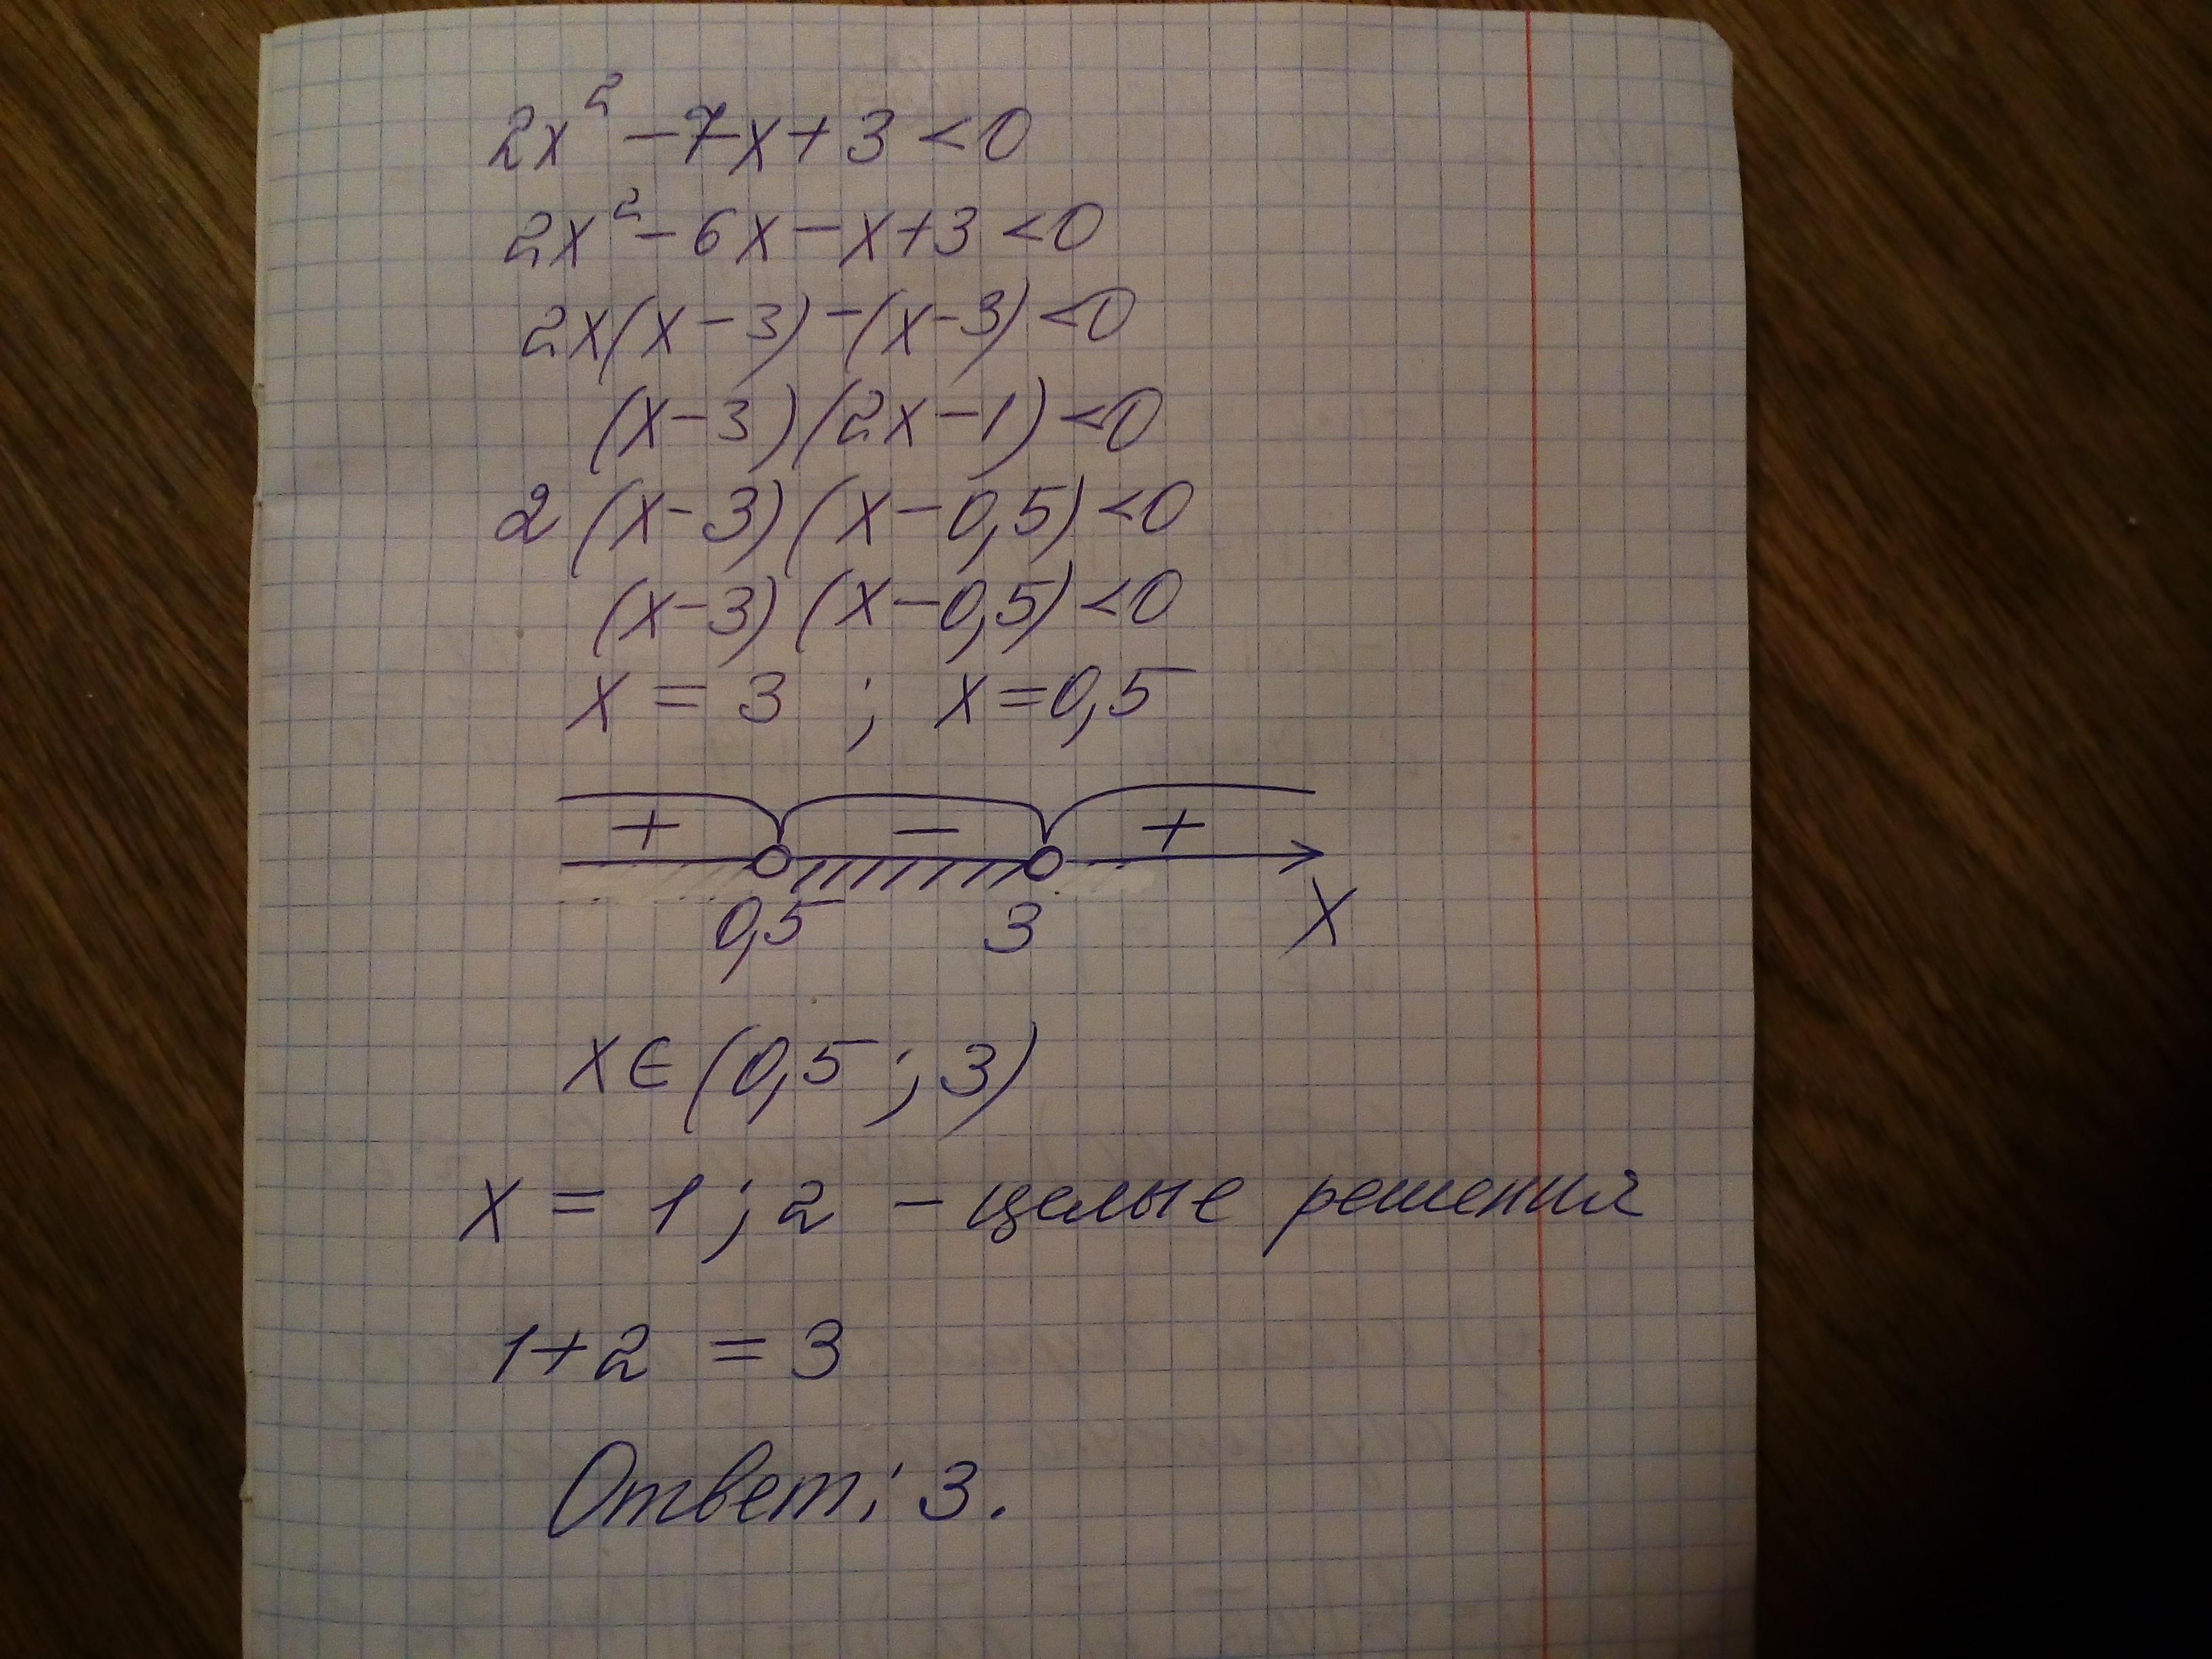 2x² - 7x + 3 < 0
2x² - 6x - x + 3 < 0
2x(x - 3) - (x - 3) < 0
(x - 3)(2x - 1) < 0
2(x - 3)(x - 0,5) < 0
(x - 3)(x - 0,5) < 0
x = 3 ; x = 0,5
+ - +
0,5 3 X
x ∈ (0,5 ; 3)
x = 1 ; 2 - целые решения
1 + 2 = 3
Ответ: 3.